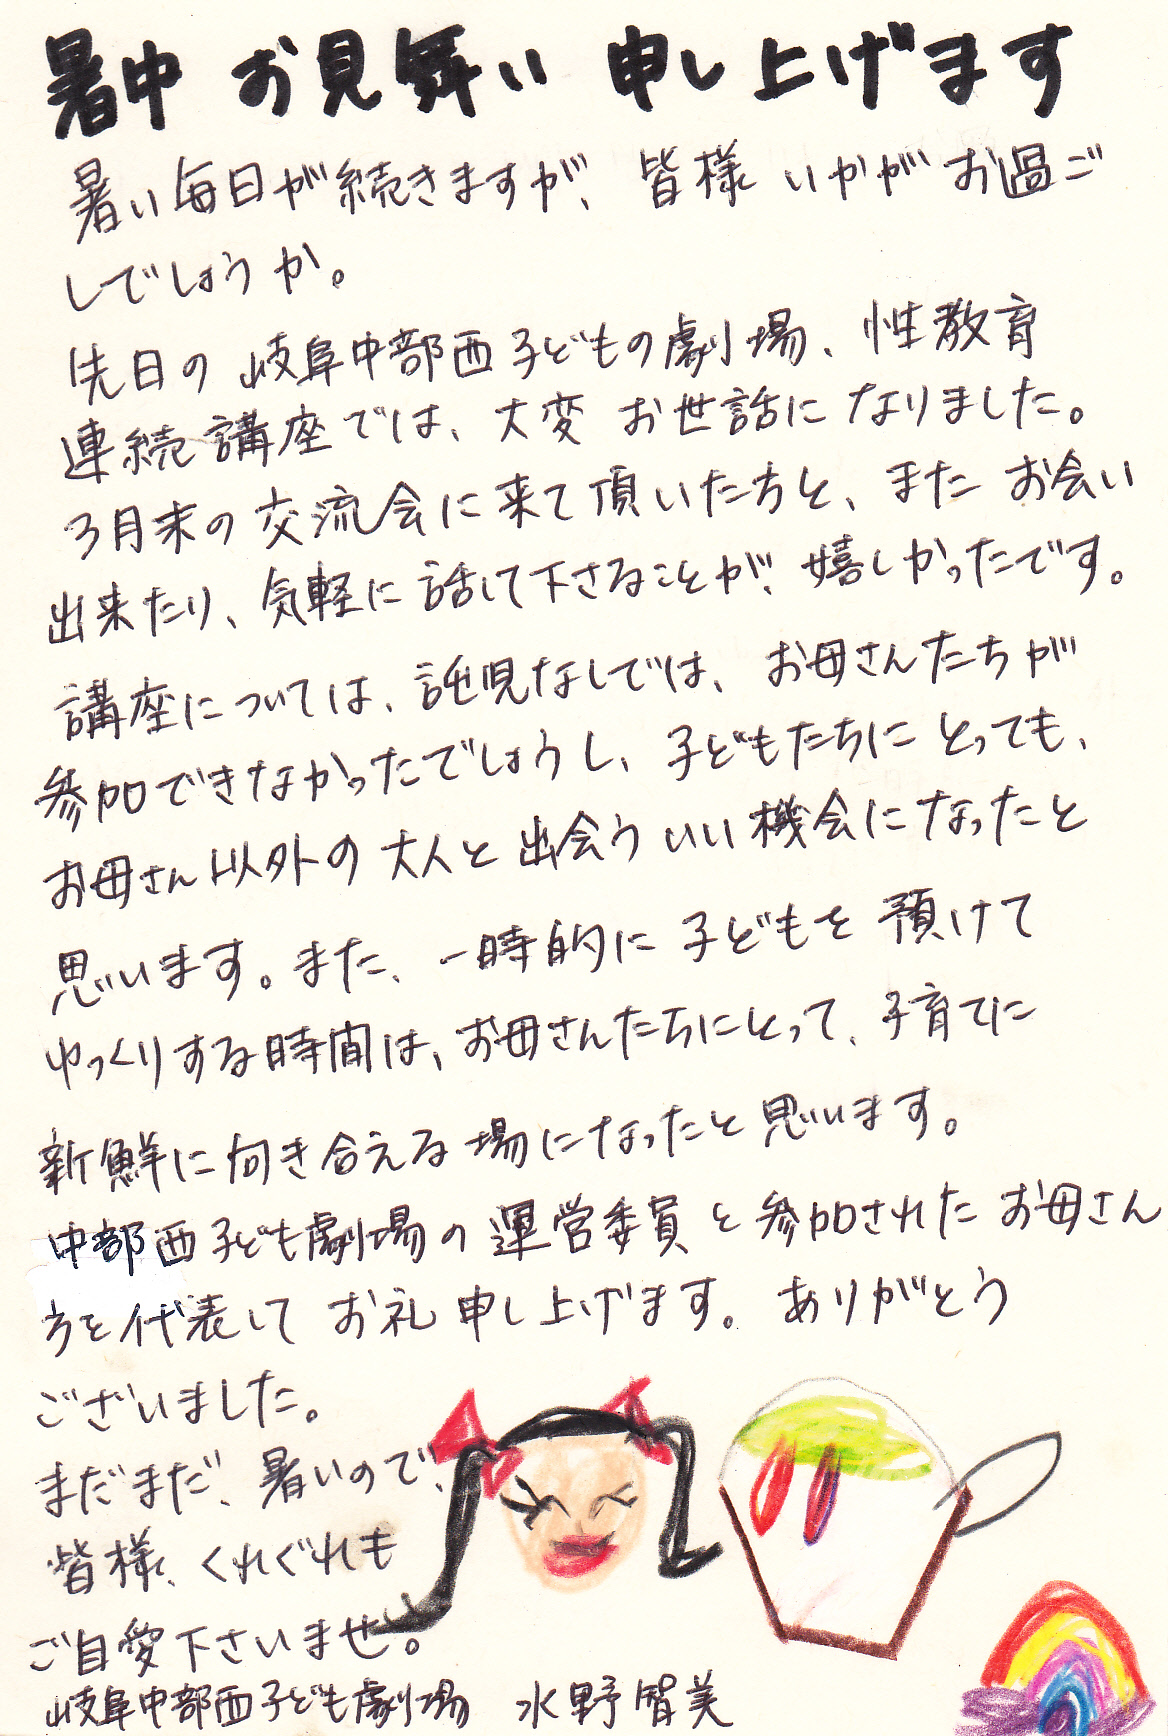 暑中 お見舞い 申し上げます
暑い毎日が続きますが、皆様 いかがお過ご
しでしょうか。
先日の 岐阜中部西子どもの劇場、性教育
連続講座では、大変 お世話に なりました。
3月末の 交流会に 来て 頂いた方と、また お会い
出来たり、気軽に 話して下さることが、嬉しかったです。
講座については、託児なしでは、お母さんたちが
参加できなかったでしょうし、子どもたちに とっても、
お母さん以外の 大人と 出会う いい機会になったと
思います。また、一時的に 子どもを 預けて
ゆっくりする時間は、お母さんたちにとって、子育てに
新鮮に向き合える 場になったと 思います。
中部西子ども劇場の 運営委員 と 参加された お母さん
方を代表して お礼 申し上げます。ありがとう
ございました。
まだまだ、暑いので、
皆様、くれぐれも
ご自愛下さいませ。
岐阜中部西子ども劇場 水野智美